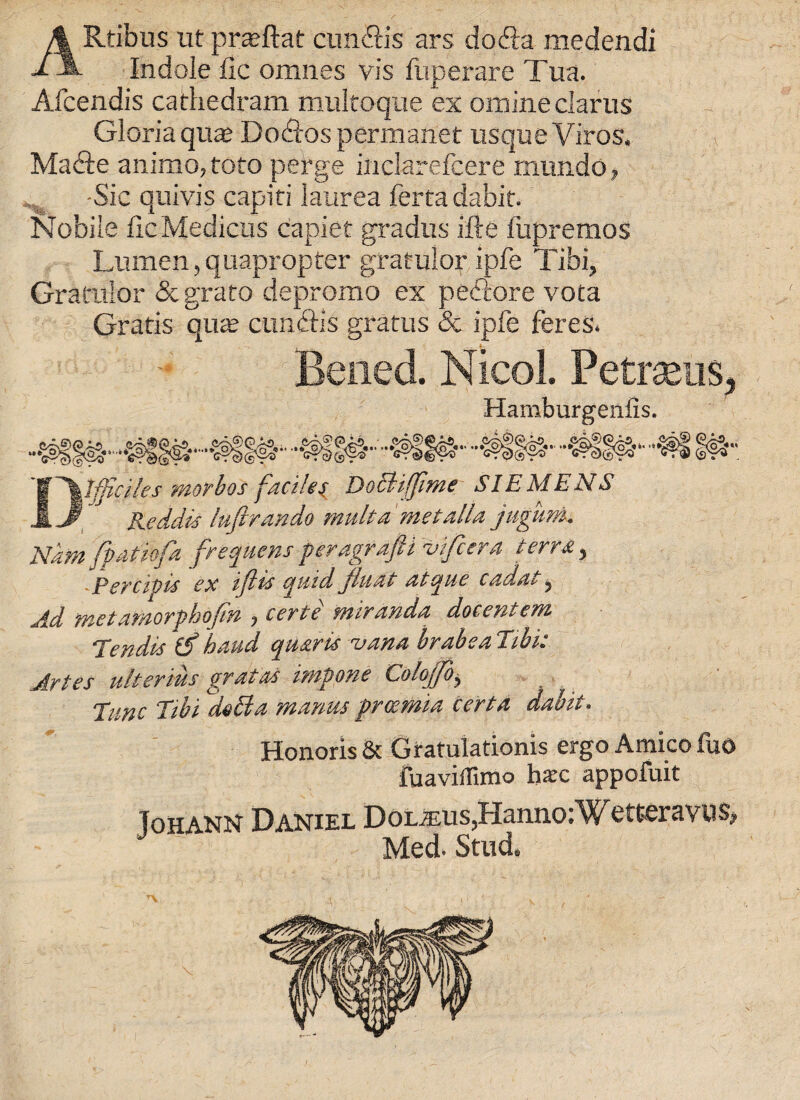 ARtibus ut præſtat cunctis ars docta medendi
Indole ſic omnes vis ſuperare Tua.
Aſcendis cathedram multoque ex omine clarus
Gloria quæ Doctos permanet usque Viros.
Macte animo, toto perge inclareſcere mundo,
Sic quivis capiti laurea ſerta dabit.
Nobile ſic Medicus capiet gradus iſte ſupremos
Lumen, quapropter gratulor ipſe Tibi,
Gratulor & grato depromo ex pectore vota
Gratis quæ cunctis gratus & ipſe feres.
Bened. Nicol. Petræus,
Hamburgenſis.
DIfficiles morbos faciles Doctiſſime SIEMENS
Reddis luſtrando multa metalla jugûm.
Nam ſpatioſa frequens peragraſti viſcera terræ,
Percipis ex iſtis quid fluat atque cadat,
Ad metamorphoſin, certè miranda docentem
Tendis & haud quæris vana brabea Tibi:
Artes ulterius gratas impone Coloſſo,
Tunc Tibi docta manus præmia certa dabit.
Honoris & Gratulationis ergo Amico ſuo
ſuaviſſimo hæc appoſuit
JOHANN DANIEL DOLÆUS, Hanno:Wetteravus,
Med. Stud.